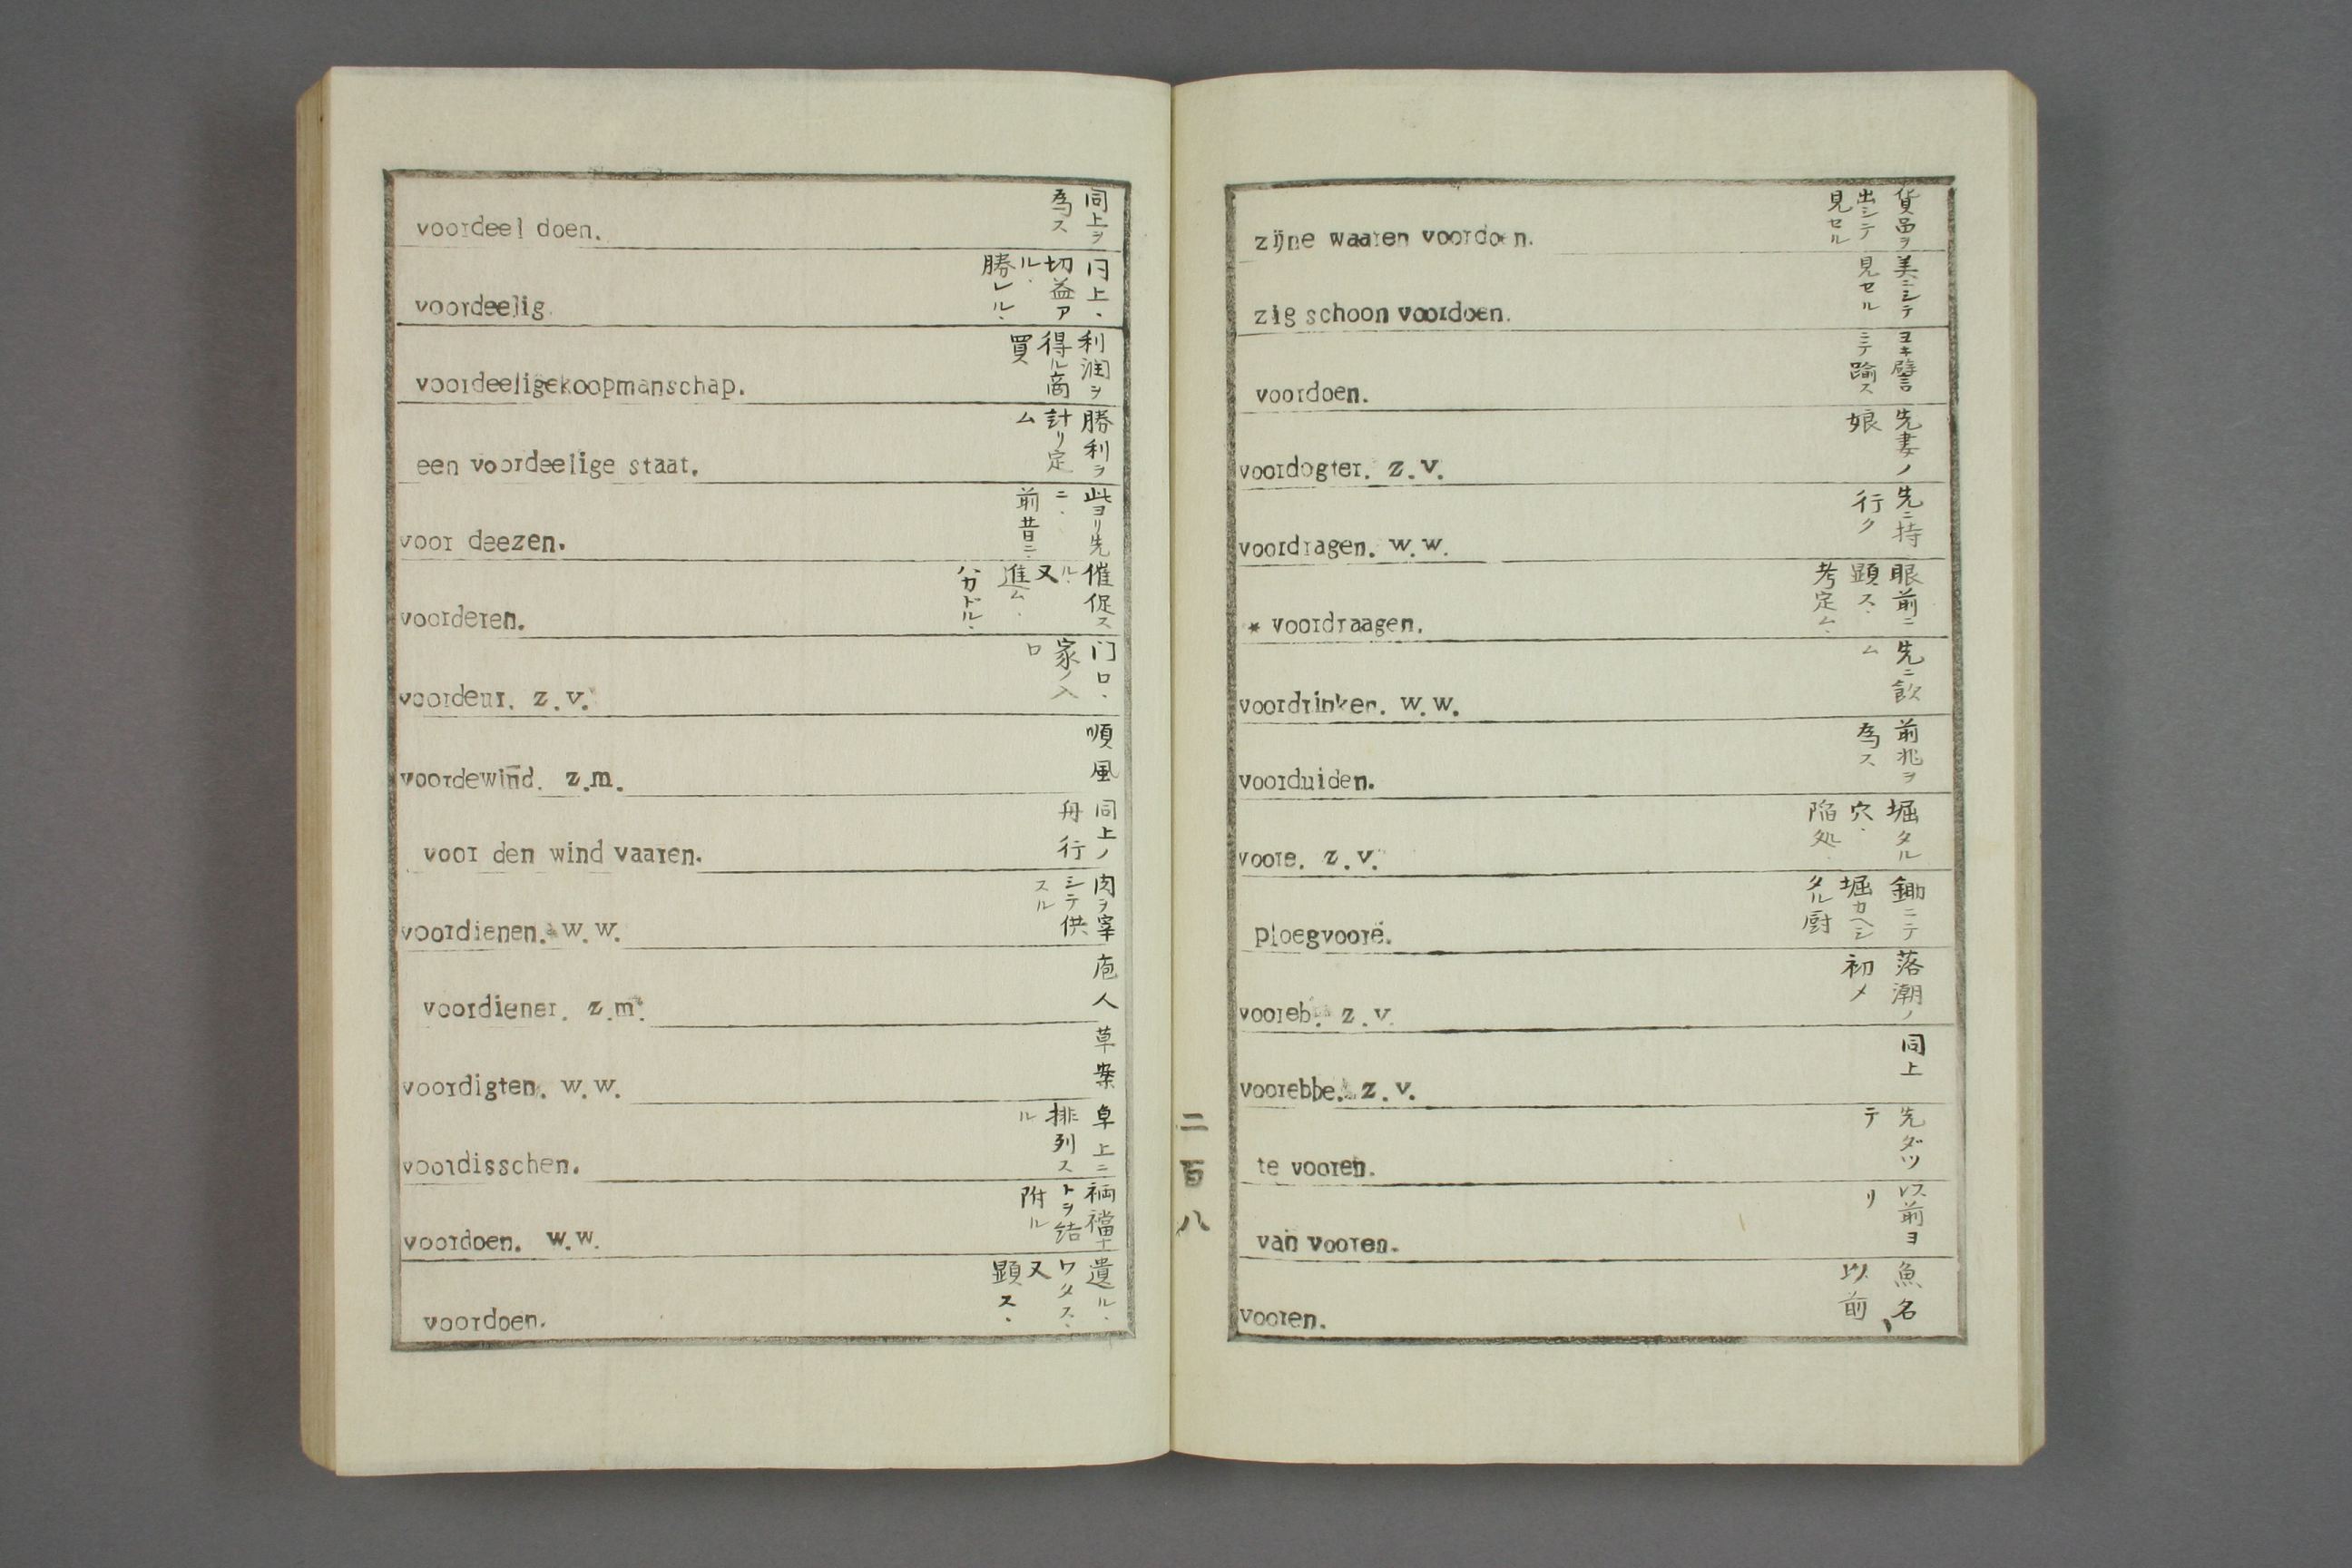 voordeel doen.
同上ヲ
為ス
voordeelig.
同上.
切益ア
ル.
勝レル.
voordeeligekoopmanschap.
利潤ヲ
得ル商
買
een voordeelige staat.
勝利ヲ
計リ定
ム
voor deezen.
此ヨリ先
ニ.
前昔ニ.
voorderen.
催促ス
ル.
又
進ム.
ハカドル.
voordeur. z.v.
门口.
家ノ入
口
voordewind. z.m.
順風
voor den wind vaaren.
同上ノ
舟行
voordienen. w.w.
肉ヲ宰
シテ供
スル
voordiener. z.m.
庖人
voordigten. w.w.
草案
voordisschen.
卓上ニ
排列ス
ル
voordoen. w.w.
裲襠ナ
トヲ結
附ル
voordoen.
遺ル.
ワタス.
又
顕ス.
二百八
zijne waaren voordoen.
貨品ヲ
出シテ
見セル
zig schoon voordoen.
美ニシテ
見セル
voordoen.
ヨキ譬言
ニテ踰ス
voordogter. z.v.
先妻ノ
娘
voordragen. w.w.
先ニ持
行ク
* voordraagen.
眼前ニ
顕ス.
考定ム.
voordrinken. w.w.
先ニ飲
ム
voorduiden.
前兆ヲ
為ス
voore. z.v.
堀タル
穴.
陥処.
ploegvoore.
鋤ニテ
堀カヘシ
タル厨
vooreb. z.v.
落潮ノ
初メ
voorebbe. z.v.
同上
te vooren.
先ダツ
テ
van vooren.
以前ヨ
リ
vooren.
魚名
以前